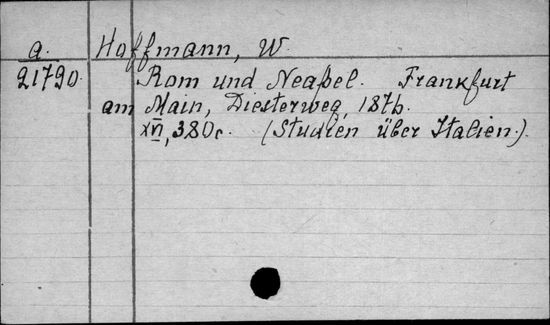 a. Hoffmann, W.
21790. Rom und Neapel. Frankfurt
am Main, Diesterweg, 1876.
XVI, 380 c. (Studien über Italien.).